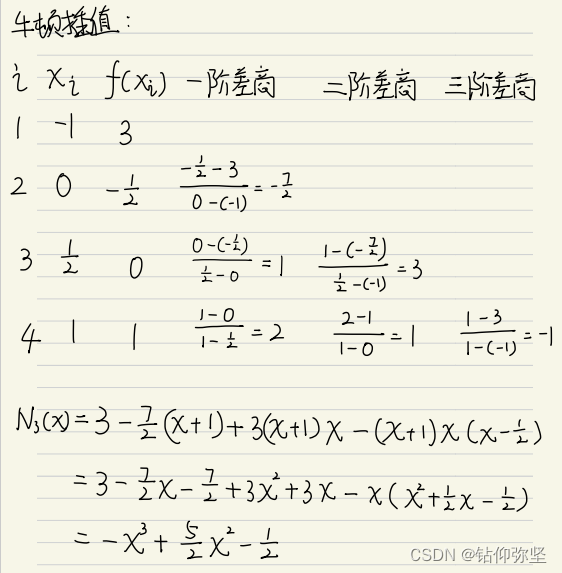 牛顿插值:
i xᵢ f(xᵢ) 一阶差商 二阶差商 三阶差商
1 -1 3
2 0 -1/2 (-1/2-3)/(0-(-1)) = -7/2
3 1/2 0 (0-(-1/2))/(1/2-0) = 1 (1-(-7/2))/(1/2-(-1)) = 3
4 1 1 (1-0)/(1-1/2) = 2 (2-1)/(1-0) = 1 (1-3)/(1-(-1)) = -1
N₃(x) = 3 - 7/2(x+1) + 3(x+1)x - (x+1)x(x-1/2)
= 3 - 7/2x - 7/2 + 3x² + 3x - x(x²+1/2x-1/2)
= -x³ + 5/2x² - 1/2
CSDN @钻仰弥坚